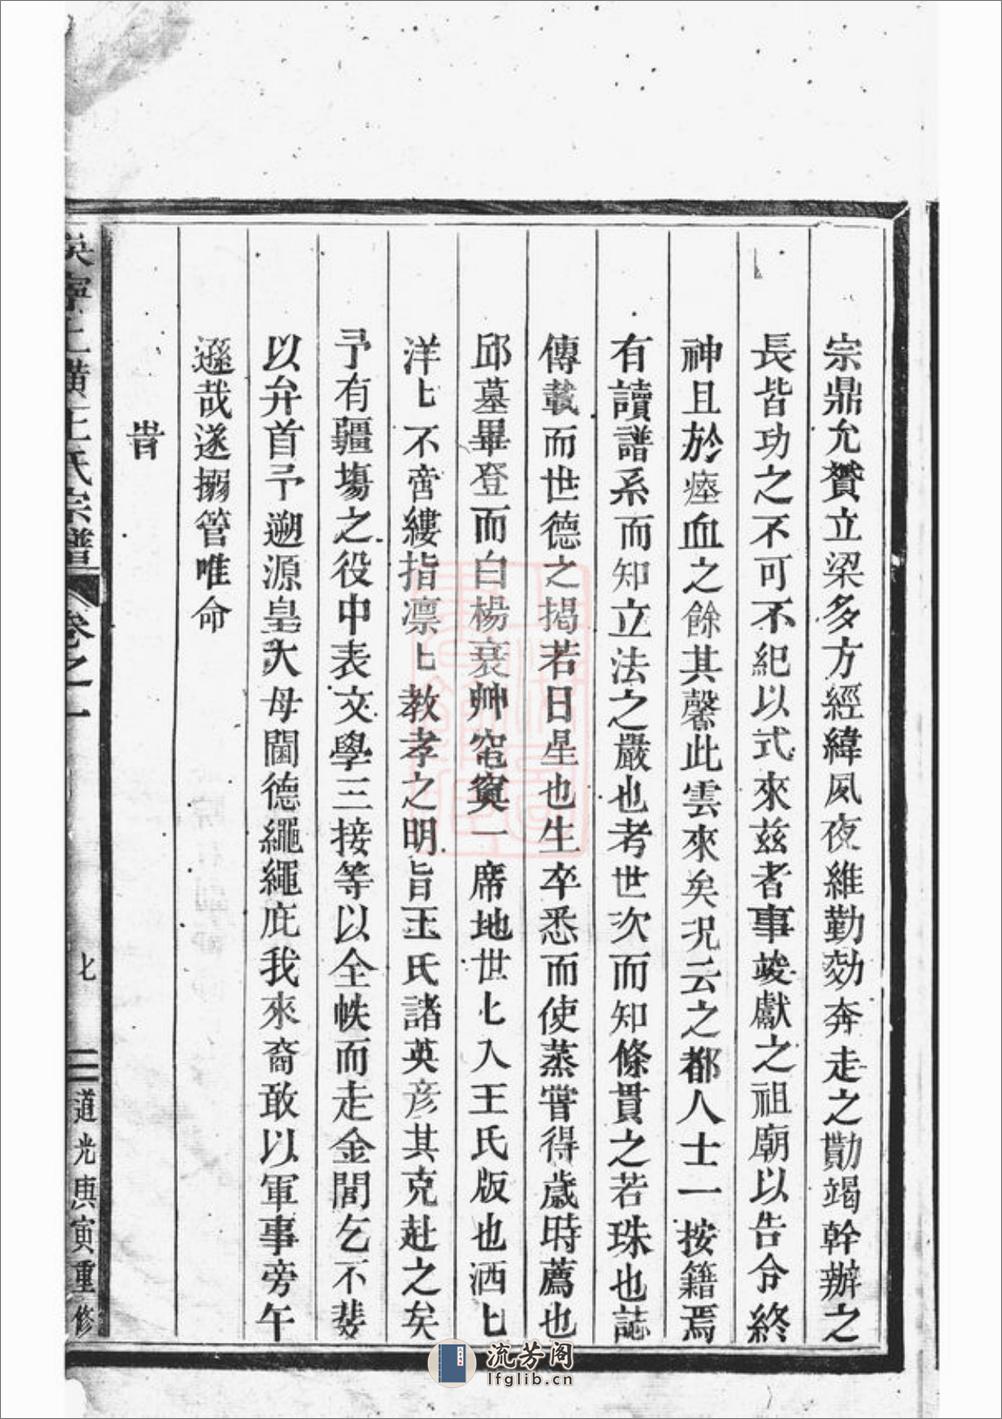 宗鼎允贊立梁多方經緯夙夜維勤効奔走之勩竭幹辦之
長皆功之不可不紀以式來茲者事竣獻之祖廟以告令終
神且於瘞血之餘其馨此雲來矣況云之都人士一按籍焉
有讀譜系而知立法之嚴也考世次而知條貫之若珠也誌
傳載而世德之揭若日星也生卒悉而使蒸嘗得歲時薦也
邱墓畢登而白楊衰艸窀窆一席地世匕入王氏版也洒匕
洋匕不啻縷指凛匕教孝之明旨王氏諸英彦其克赴之矣
予有疆塲之役中表文學三接等以全帙而走金閶乞不斐
以弁首予遡源皇大母閫德繩繩庇我來裔敢以軍事旁午
遜哉遂搦管唯命
旹
吳寧上璜王氏宗譜 卷之一 七 道光庚寅重修
流芳阁
lfglib.cn